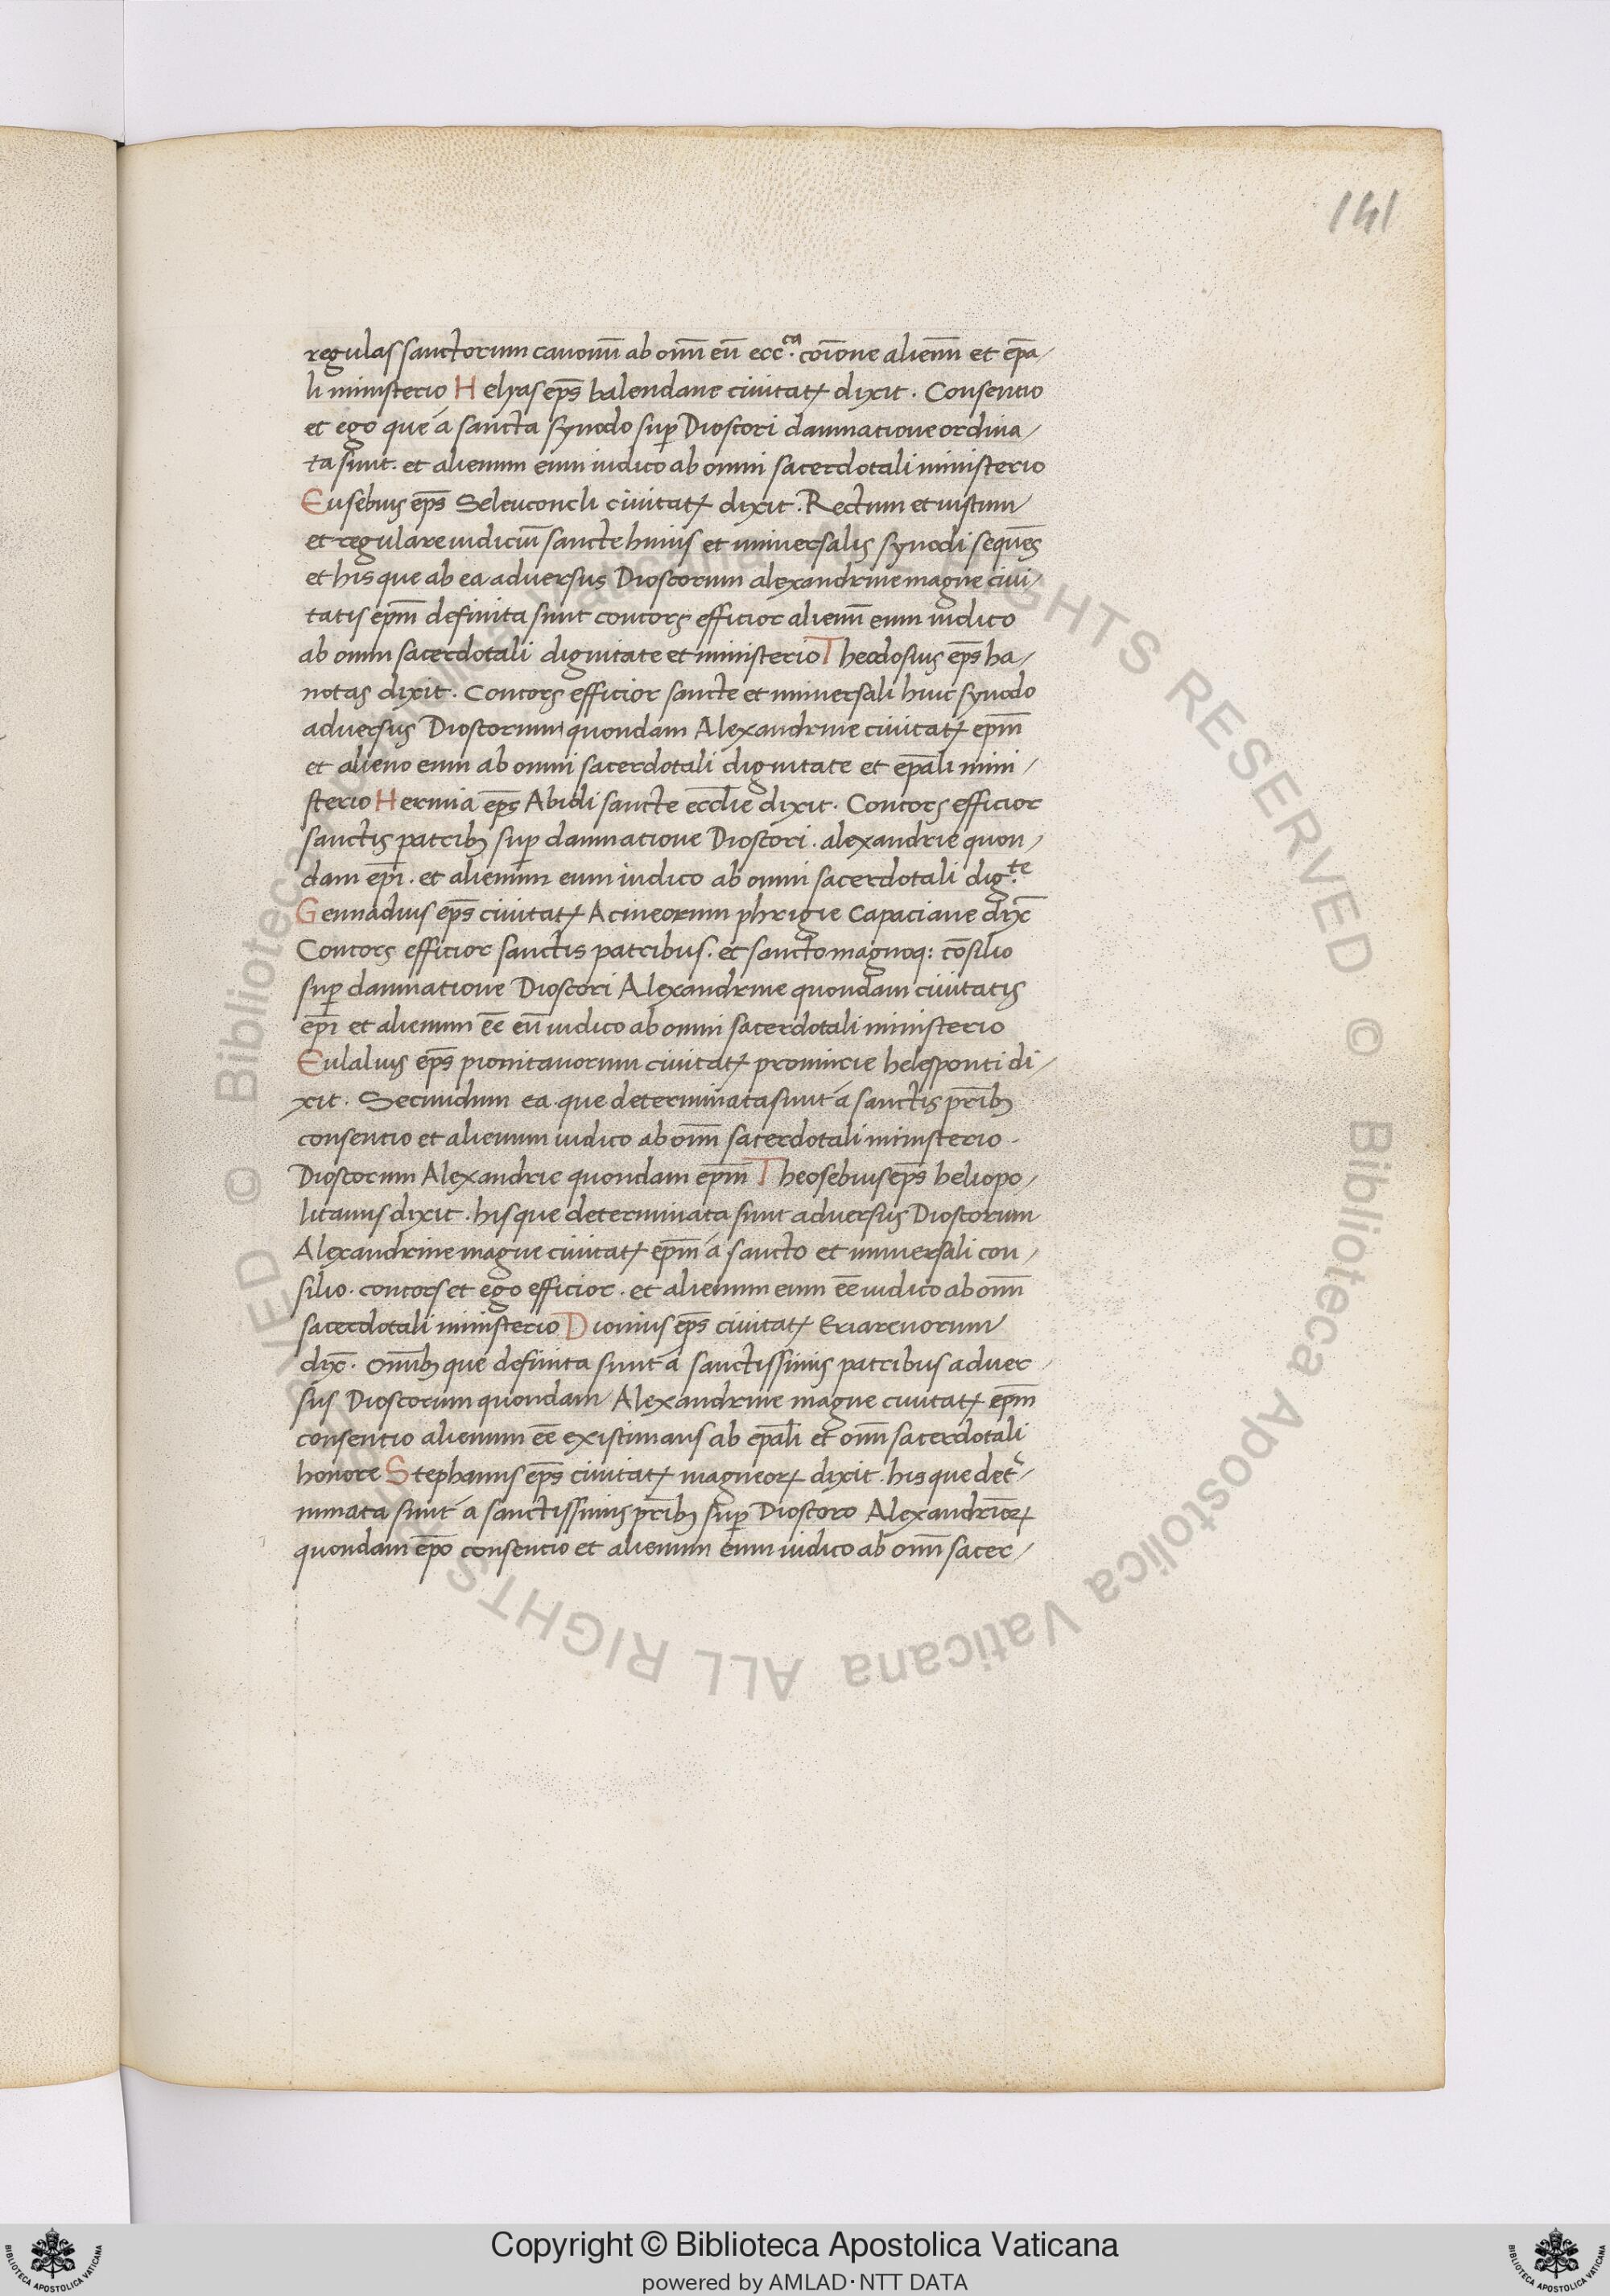 141
regulas sanctorum canonũ ab omĩ eũ ecc.ca coĩone alienũ et ep̃a/
li ministerio Helyas ep̃s balendane ciuitatꝭ dixit. Consentio
et ego que á sancta synodo sup̃ Dioscori damnatione ordina/
ta sunt. et alienum eum iudico ab omni sacerdotali ministerio
Eusebius ep̃s Seleuconcli ciuitatꝭ dixit. Rectum et iustum
et regulare iudiciũ sancte huius et uniuersalis synodi sequẽs
et his que ab ea aduersus Dioscorum alexandrine magne ciui/
tatis ep̃m definita sunt concors efficior alienũ eum iudico
ab omni sacerdotali dignitate et ministerio Theodosius ep̃s ba/
notas dixit. Concors efficior sancte et uniuersali huic synodo
aduersus Dioscorum quondam Alexandrine ciuitatꝭ ep̃m
et alieno eum ab omni sacerdotali dignitate et ep̃ali mini/
sterio Hermia ep̃s Abidi sancte eccl̃ie dixit. Concors efficior
sanctis patribꝫ sup̃ damnatione Dioscori. alexandrie quon/
dam ep̃i. et alienum eum iudico ab omni sacerdotali dig.te
Gennadius ep̃s ciuitatꝭ Acineorum phrigie Capaciane dix̃
Concors efficior sanctis patribus. et sancto magnoq: cõsilio
sup̃ damnatione Dioscori Alexandrine quondam ciuitatis
ep̃i et alienum eẽ eũ iudico ab omni sacerdotali ministerio
Eulalius ep̃s pionitanorum ciuitatꝭ prouincie helesponti di/
xit. Secundum ea que determinata sunt á sanctis pr̃ibꝫ
consentio et alienum iudico ab om̃i sacerdotali ministerio.
Dioscorum Alexandrie quondam ep̃m Theosebius ep̃s heliopo/
litanus dixit. his que determinata sunt aduersus Dioscorum
Alexandrine magne ciuitatꝭ ep̃m á sancto et uniuersali con/
silio. concors et ego efficior. et alienum eum eẽ iudico ab om̃i
sacerdotali ministerio Dionius ep̃s ciuitatꝭ Eriarenorum
dix̃. Om̃ibꝫ que definita sunt á sanctissimis patribus aduer/
sus Dioscorum quondam Alexandrine magne ciuitatꝭ ep̃m
consentio alienum eẽ existimans ab ep̃ali et om̃i sacerdotali
honore Stephanus ep̃s ciuitatꝭ magneorꝭ dixit. his que det̃/
minata sunt á sanctissimis pr̃ibꝫ sup̃ Dioscoro Alexandrĩorꝭ
quondam ep̃o consentio et alienum eum iudico ab om̃i sacer/
© Biblioteca Apostolica Vaticana ALL RIGHTS RESERVED © Biblioteca Apostolica Vaticana ALL RIGHTS RESERVED
Copyright © Biblioteca Apostolica Vaticana
powered by AMLAD·NTT DATA
BIBLIOTECA APOSTOLICA VATICANA
BIBLIOTECA APOSTOLICA VATICANA